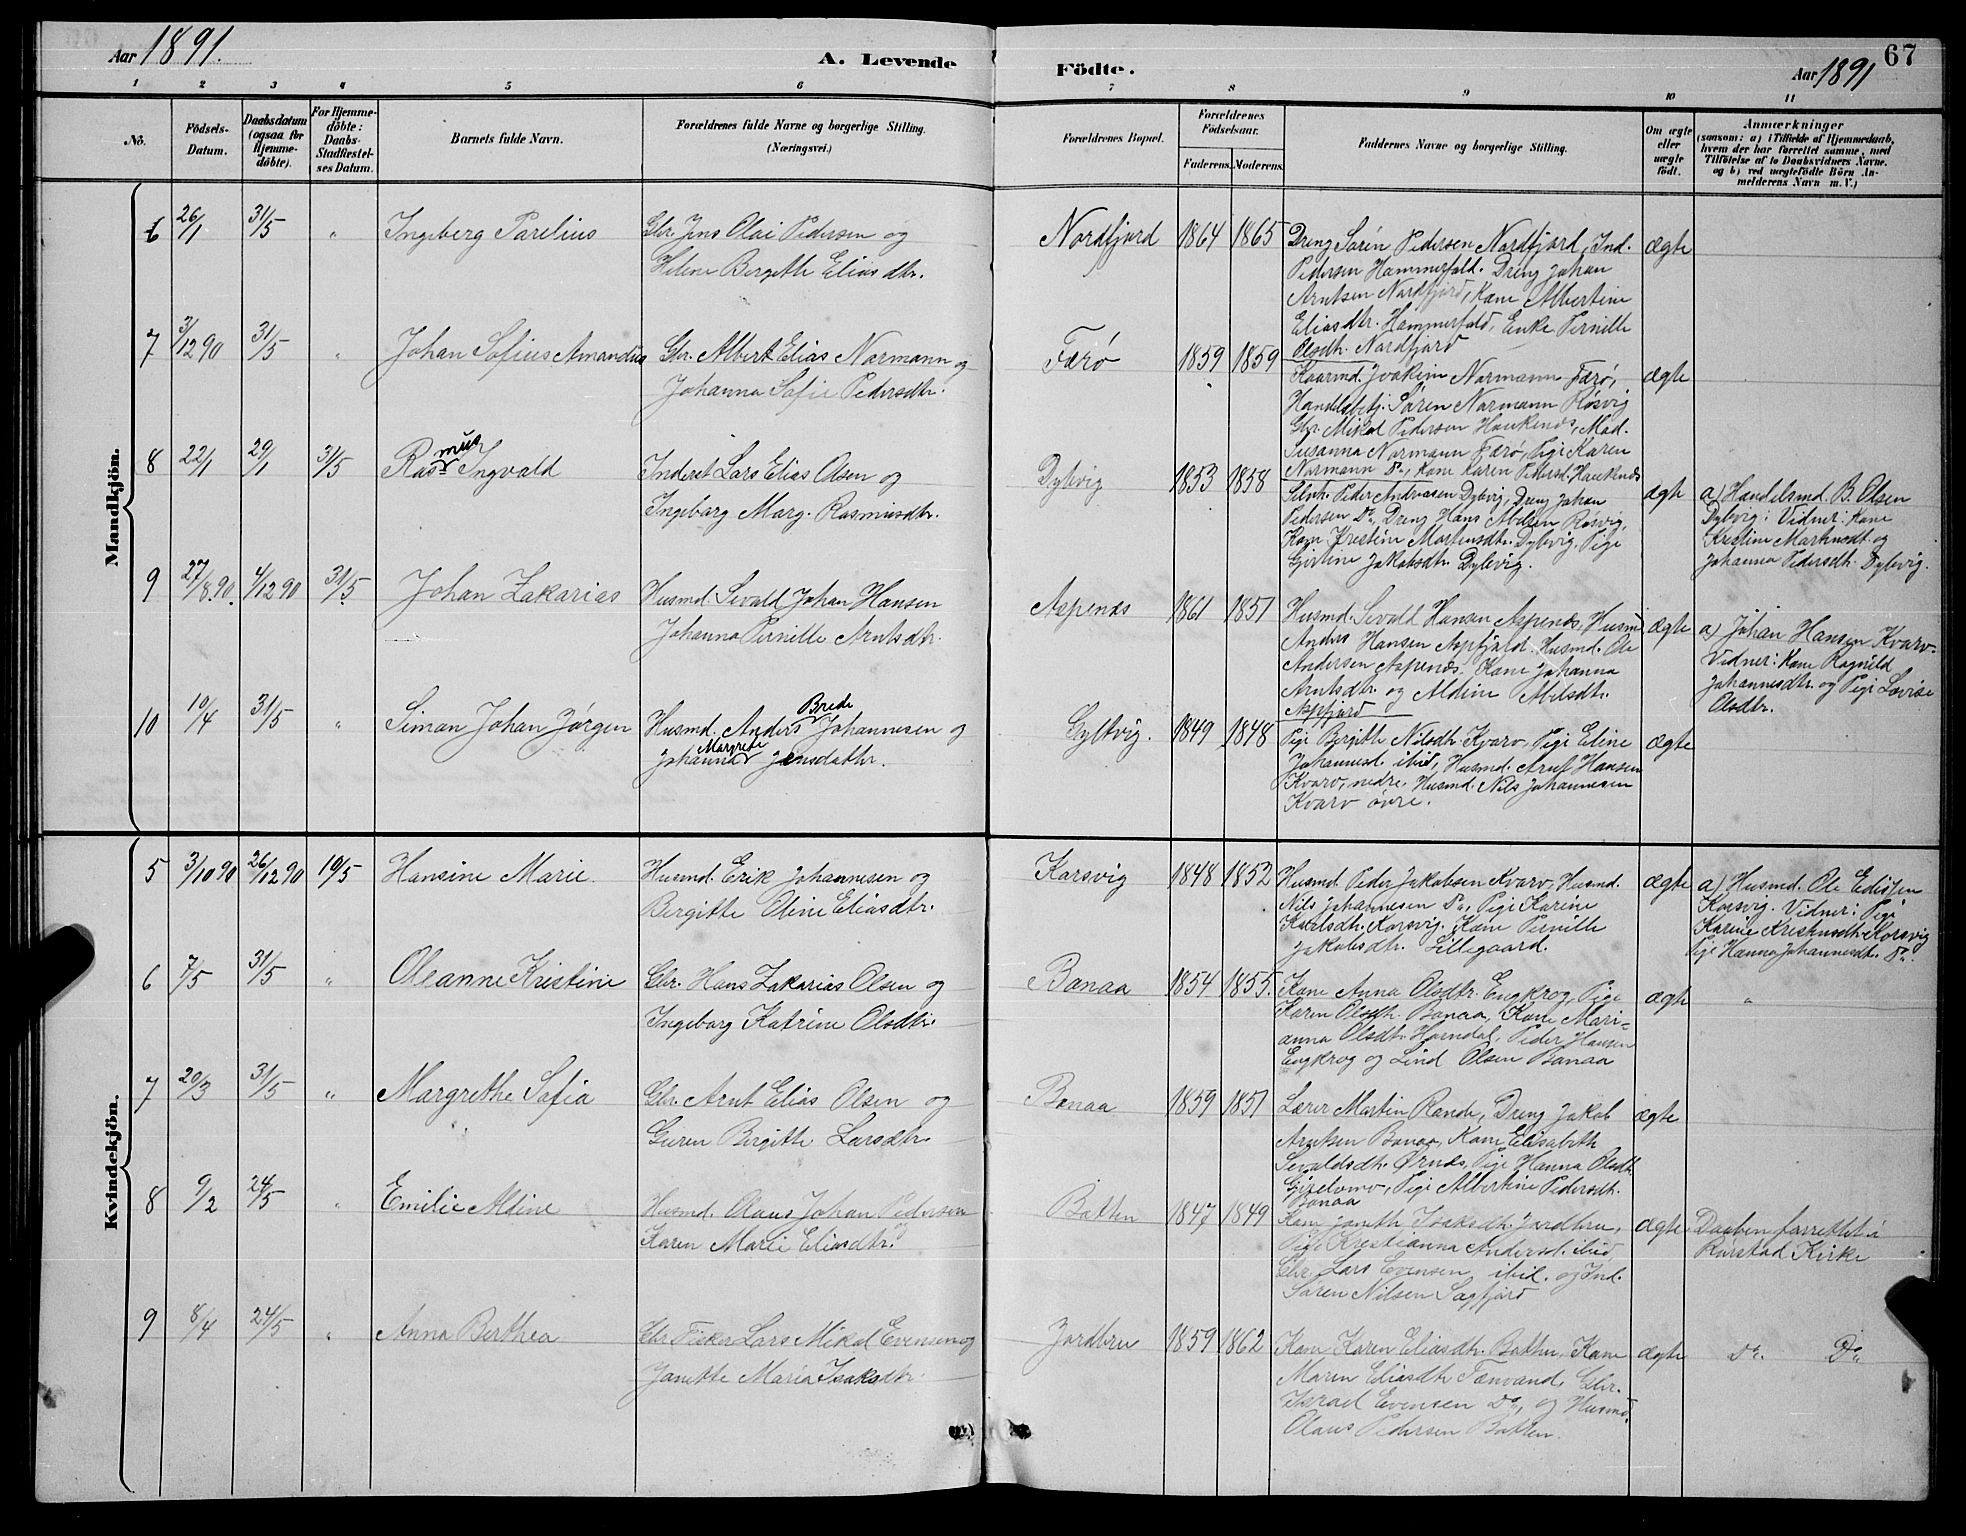 Aar 1891.
A. Levende
Födte.
Aar 1891
67
1 2 3 4 5 6 7 8 9 10 11
No.
Födsels-Datum.
Daabsdatum (ogsaa for Hjemme-döbte).
For Hjemme-döbte: Daabs-Stadfæstel-ses Datum.
Barnets fulde Navn.
Forældrenes fulde Navne og borgerlige Stilling. (Næringsvei.)
Forældrenes Bopæl.
Forældrenes Födselsaar.
Faderens. Moderens.
Faddernes Navne og borgerlige Stilling.
Om ægte eller uægte födt.
Anmærkninger
(saasom: a) i Tilfælde af Hjemmedaab,
hvem der har forrettet samme, med
Tilföielse af to Daabsvidners Navne.
og b) ved uægtefödte Börn An-
melderens Navn m. V.)
Mandkjön.
6 26/1 31/5 " Ingeberg Parelius
Gbr. Jens Olai Pedersen og
Helene Bergitte Eliasdtr.
Nordfjord 1864 1865
Dreng Sørén Pedersen Nordfjord, Ind.
Pedersen Hammerfald. Dreng Johan
Arntsen Nordfjord, Kone Albertine
Eliasdtr. Hammerfald, Enke Pernille
Olsdtr. Nordfjord
ægte
7 3/12 90 31/5 " Johan Sofius Amandus
Gbr. Albert Elias Normann og
Johanna Sofie Pedersdtr.
Færø 1859 1859
Kaarmd. Joakim Normann Færø,
Handelsbetj. Søren Normann Røsvig
Gbr. Mikal Pedersen Haukenes, Mad.
Susanna Normann Færø, Pige Karen
Normann Do, Kone Karen Pedersd. Haukenes
ægte
8 22/1 29/1 31/5 Rasmus Ingvald
Inderst Lars Elias Olsen og
Ingeborg Marg. Rasmusdtr.
Dybvig 1853 1858
Peder Andreasen Dybvig, Dreng Johan
Pedersen Do, Dreng Hans Abelsen Røsvig,
Kone Kristine Mortensdtr. Dybvig, Pige
Gjertine Jakobsdtr. Dybvig.
ægte
a) Handelsmd. B. Olsen
Dybvig: Vidner: Kone
Kristine Martinsdt. og
Johanna Pedersdtr. Dybvig.
9 27/8 90. 4/12 90 31/5 Johan Zakarias
Husmd. Sevald Johan Hansen
Johanna Pernille Arntsdtr.
Aspenæs 1861 1851
Husmd. Sevald Hansen Aspenæs, Husmd
Anders Hansen Aspfjord. Husmd. Ole
Andersen Aspenæs. Kone Johanna
Arntsdtr. og Aldine Abelsdtr.
Aspfjord
ægte
a) Johan Hansen Kvarv.
Vidner: Kone Ragnild
Johannesdtr. og Pige Lovise
Olsdtr.
10 10/4 31/5 " Simon Johan Jørgen
Husmd. Anders Brede Johannesen og
Johanna Margrete Jensdatter.
Gyltvig. 1849 1848
Pige Bergitte Nilsdtr. Kvarv, Pige Eline
Johannesd. ibid, Husmd. Arnt Hansen
Kvarv, nedre, Husmd. Nils Johannesen
Kvarv øvre.
ægte
Kvindekjön.
5 3/10 90 26/12 90 10/5 Hansine Marie.
Husmd. Erik Johannesen og
Bergitte Oline Eliasdtr.
Korsvig 1848 1852
Husmd. Peder Jakobsen Kvarv, Husmd.
Nils Johannesen Do, Pige Karine
Korsvig. Kone Pernille
Jakobsdtr. Lillegaard.
ægte
a) Husmd. Ole
Korsvig. Vidner: Pige
Karine Korsvig
Pige Hanna Johannesdt. Do.
6 7/5 31/5 " Oleanne Kristine
Gbr. Hans Zakarias Olsen og
Ingeborg Katrine Olsdtr.
Bonaa 1854 1855.
Kone Anna Olsdtr. Engkrog, Pige
Karen Olsdtr. Bonaa, Kone Mari-
anna Olsdtr. Horndal, Peder Hansen
Engkrog og Lind Olsen Bonaa
ægte "
7 20/3 31/5 " Margrethe Sofia
Gbr. Arnt Elias Olsen og
Guren Birgitte Larsdtr.
Bonaa 1859 1851
Lærer Martin Rande, Dreng Jakob
Arntsen Bonaa, Kone Elisabeth
Sevaldsdtr. Ørnes, Pige Hanna Olsdtr.
Pige Albertine Pedersdtr.
Bonaa
ægte
8 9/2 24/5 " Emilie Aldine
Husmd. Olaus Johan Pedersen og
Karen Marie Eliasdtr.
Botten 1847 1849
Kone Janette Isaksdtr. Jordbru,
Pige Krestianna Andersd. ibid,
Gbr. Lars Evensen ibid. og Ind.
Søren Nilsen Sagfjord
ægte
Daaben forrettet i
Rørstad Kirke
9 8/4 24/5 " Anna Berthea
Gbr. Fisker Lars Mikal Evensen og
Janette Maria Isaksdtr.
Jordbru 1859 1862
Kone Karen Eliasdtr. Botten, Kone
Maren Eliasdtr. Tennvand, Gbr.
Israel Evensen Do, og Husmd.
Olaus Pedersen Botten.
ægte
Do. Do